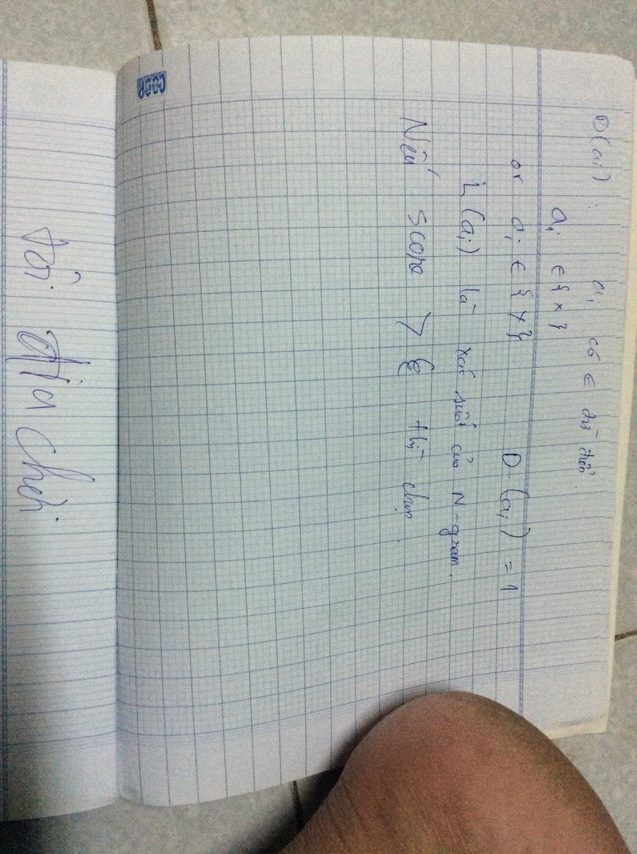 D(ai) : ai có ∈ từ điển
ai ∈ { x }
or ai ∈ { y } D (ai) = 1
L (ai) là xác suất của N-gram.
Nếu score > ξ thì chọn.
COOP
tôi đia chơi